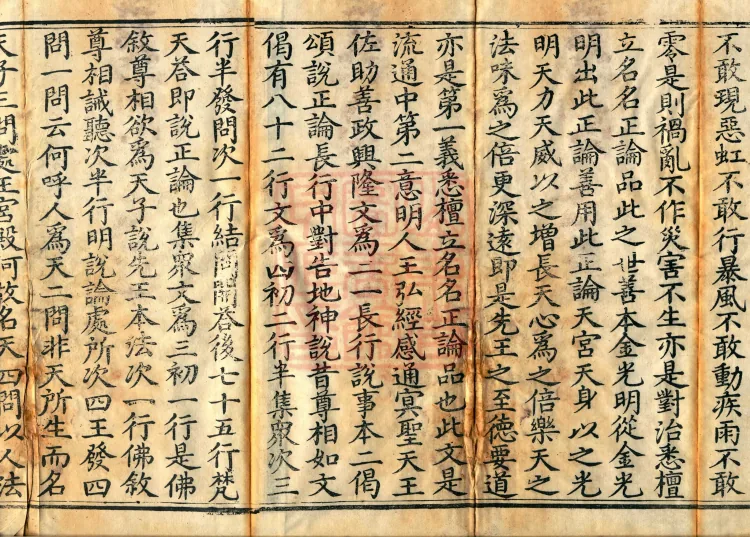 不敢現惡虹不敢行暴風不敢動疾雨不敢
零是則禍亂不作災害不生亦是對治悉檀
立名名正論品此之世善本金光明從金光
明出此正論善用此正論天宮天身以之光
明天力天威以之增長天心爲之倍樂天之
法味爲之倍更深遠即是先王之至德要道
亦是第一義悉檀立名名正論品也此文是
流通中第二意明人王弘經感通冥聖天王
佐助善政興隆文爲二一長行說事本二偈
頌說正論長行中對告地神說昔尊相如文
偈有八十二行文爲四初二行半集衆次三
行半發問次一行結問開答後七十五行梵
天荅即說正論也集衆文爲三初一行是佛
敘尊相欲爲天子說先王本法次一行佛敘
尊相誡聽次半行明說論處所次四王發四
問一問云何呼人爲天二問非天所生而名
天子三問處王宮殿何故名天四問以人法